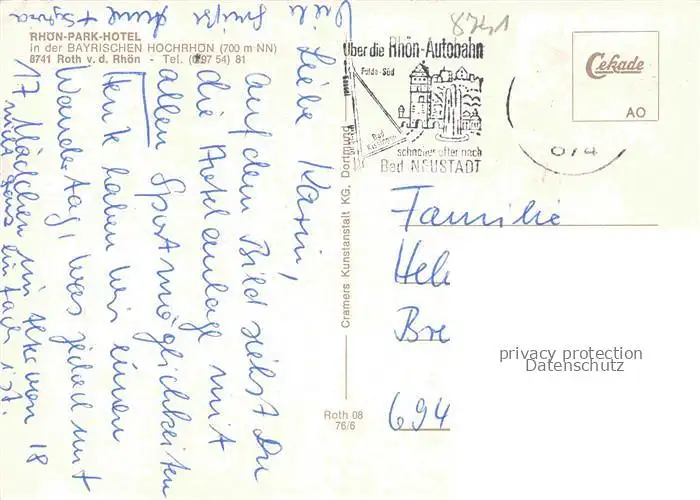 RHÖN-PARK-HOTEL
in der BAYRISCHEN HOCHRHÖN (700 m NN)
8741 Roth v. d. Rhön - Tel. (0 97 54) 81
Liebe Karin,
auf dem Bild siehst Du
die Hotelanlage mit
allen Sportmöglichkeiten
Heute haben wir einen
Wandertag, was jedoch mit
17 Mädchen im Alter von 18
nicht ganz einfach ist.
Viele Grüße
Cramers Kunstanstalt KG, Dortmund
Roth 08
76/6
8741
Über die Rhön-Autobahn
Fulda-Süd
Bad
schneller öfter nach
Bad NEUSTADT
Cekade
AO
Familie
Hel
Bre
694
privacy protection
Datenschutz